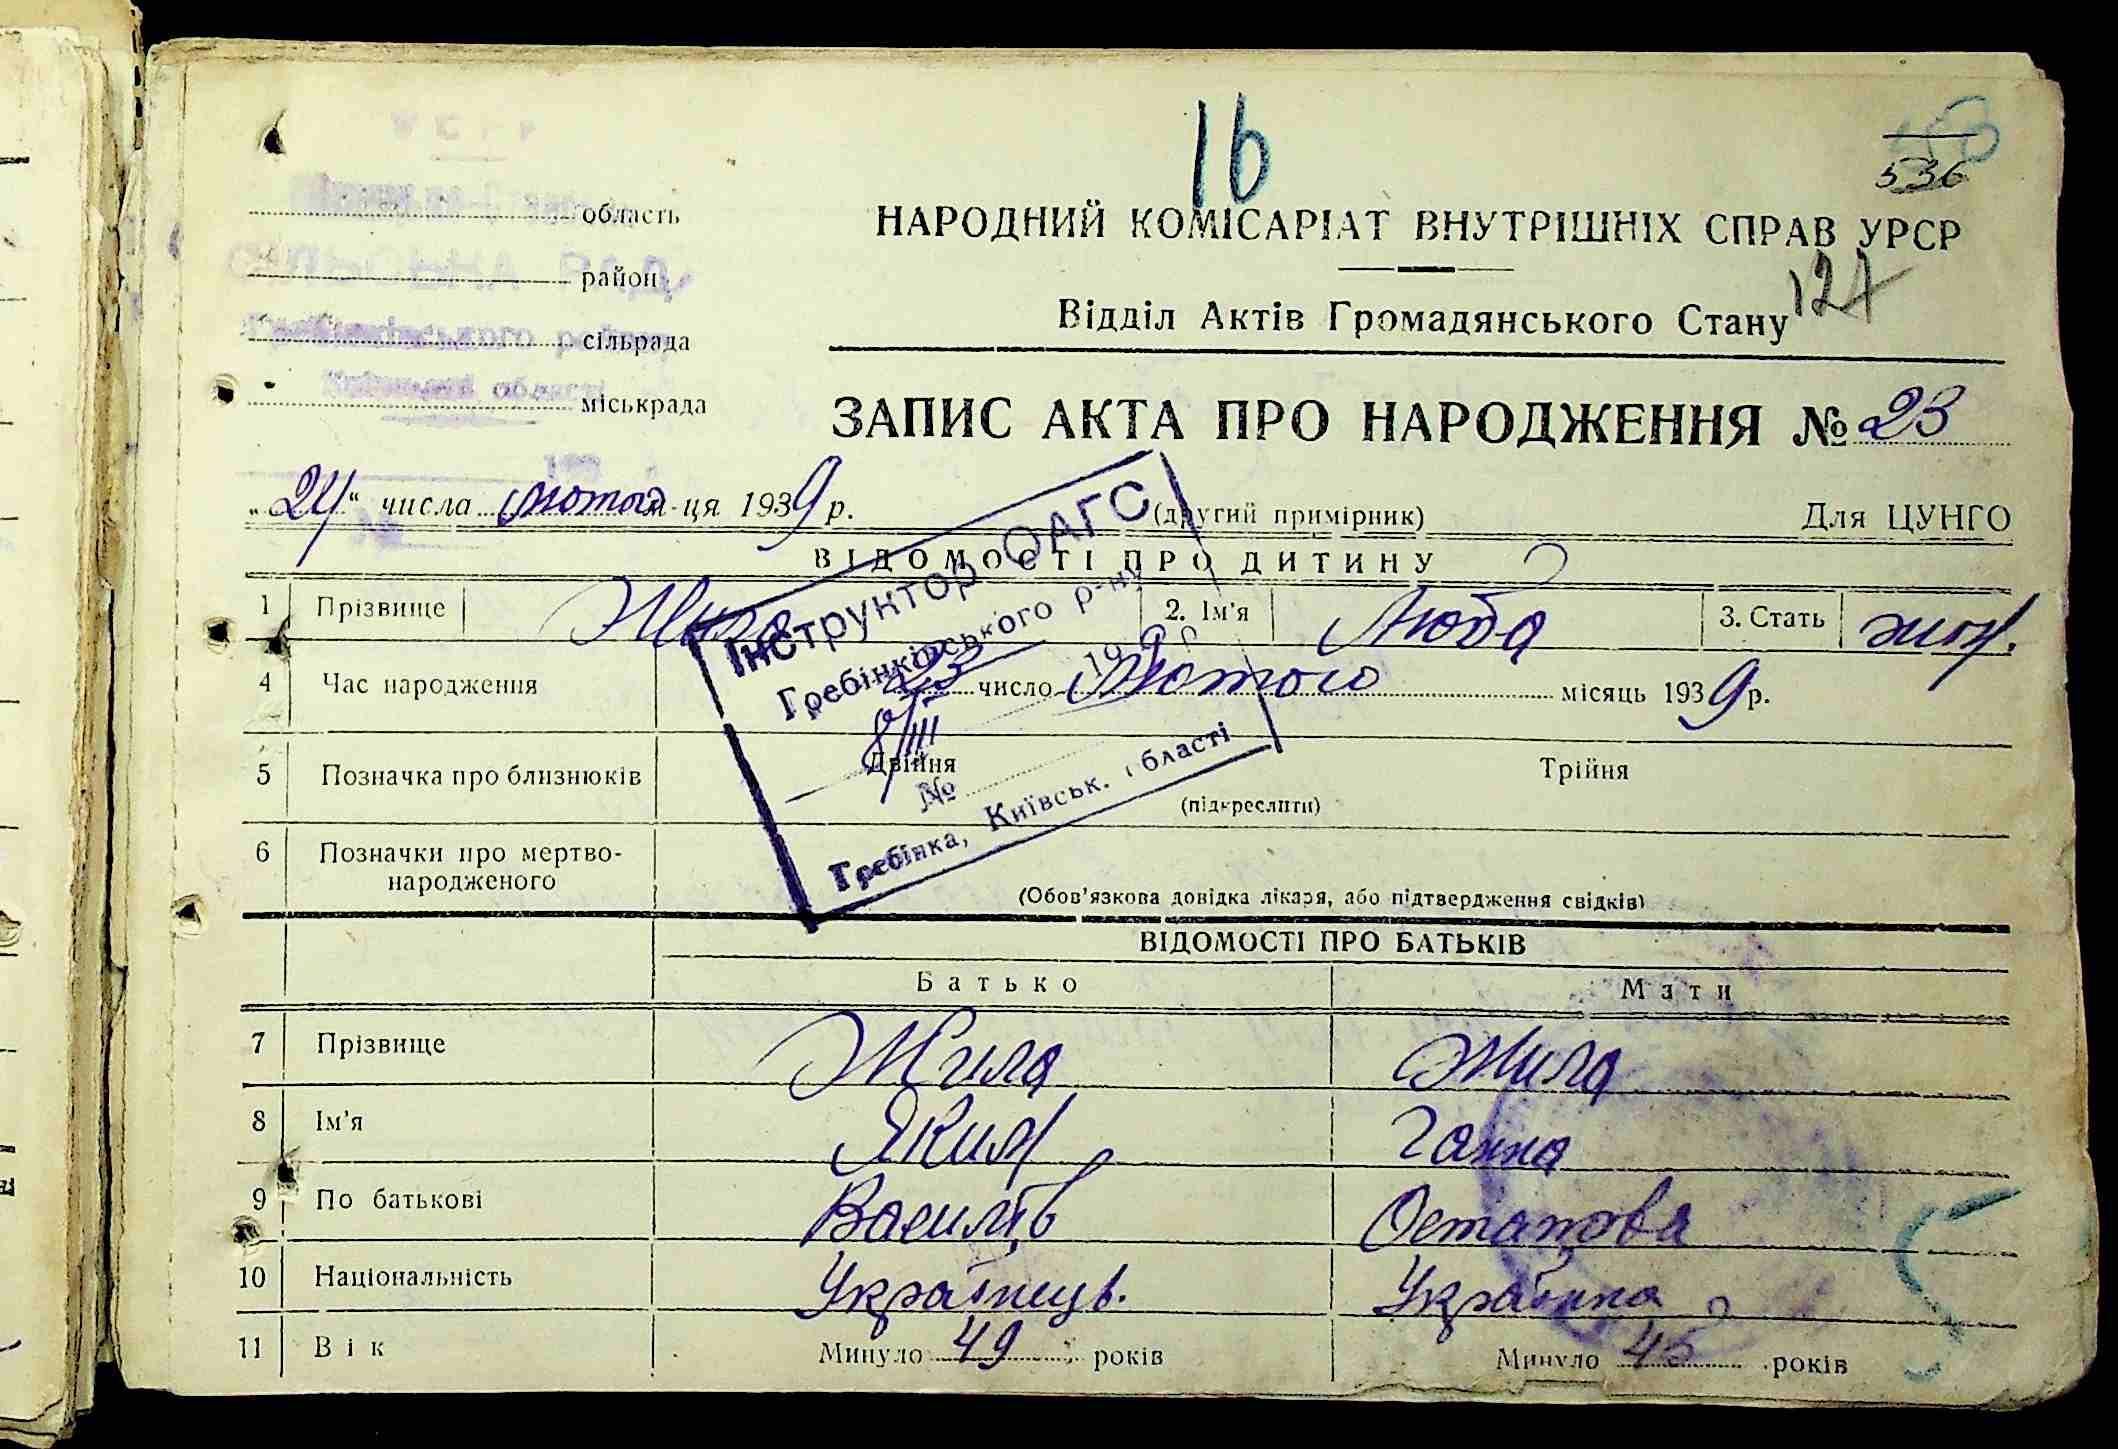 16
536
область
район
сільрада
міськрада
НАРОДНИЙ КОМІСАРІАТ ВНУТРІШНІХ СПРАВ УРСР
127
Відділ Актів Громадянського Стану
ЗАПИС АКТА ПРО НАРОДЖЕННЯ № 23
„24“ числа лютого м-ця 1939 р.
(другий примірник)
Для ЦУНГО
ВІДОМОСТІ ПРО ДИТИНУ
1 Прізвище Жила 2. Ім'я Люба 3. Стать жін.
4 Час народження 23 число лютого місяць 1939 р.
5 Позначка про близнюків Двійня Трійня
(підкреслити)
6 Позначки про мертво-
народженого
(Обов'язкова довідка лікаря, або підтвердження свідків)
Інструктор ОАГС
Гребінківського р-ну
8/III 1939 р
№
Гребінка, Київськ. області
ВІДОМОСТІ ПРО БАТЬКІВ
Батько Мати
7 Прізвище Жила Жила
8 Ім'я Яким Ганна
9 По батькові Васильів Остапова
10 Національність Українець. Українка
11 Вік Минуло 49 років Минуло 45 років